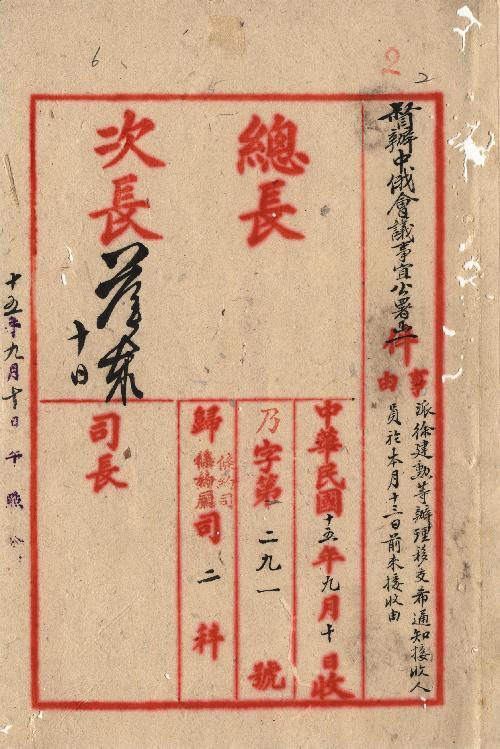 6
2
2
督辦中俄會議事宜公署
件
事由
派徐建勳等辦理移交希通知接收人
員於本月十三日前來接收由
總長
次長
十日
中華民國十五年九月十日收
乃字第一二九一號
歸條約司司二科
司長
十五年九月十日午